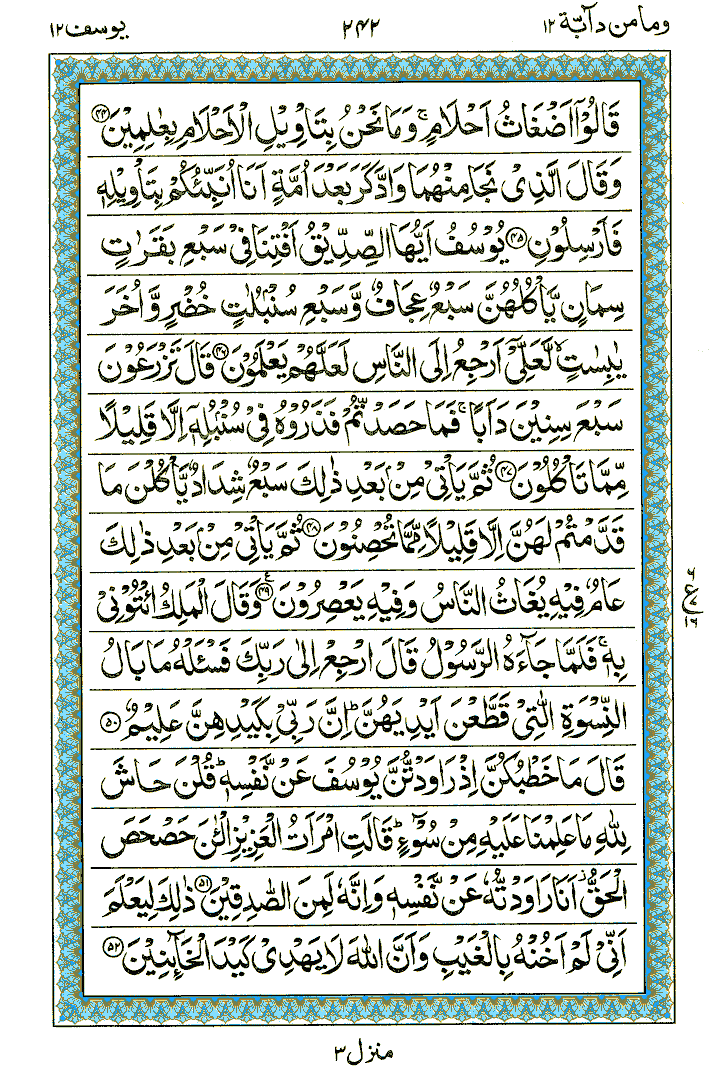 وما من دآبة ١٢ ٢٤٢ يوسف ١٢
قَالُوْۤا اَضْغَاثُ اَحْلَامٍ ۚ وَمَا نَحْنُ بِتَاْوِيْلِ الْاَحْلَامِ بِعٰلِمِيْنَ ﴿۴۴﴾
وَقَالَ الَّذِيْ نَجَا مِنْهُمَا وَادَّكَرَ بَعْدَ اُمَّةٍ اَنَا اُنَبِّئُكُمْ بِتَاْوِيْلِهٖ
فَاَرْسِلُوْنِ ﴿۴۵﴾ يُوْسُفُ اَيُّهَا الصِّدِّيْقُ اَفْتِنَا فِيْ سَبْعِ بَقَرٰتٍ
سِمَانٍ يَّاْكُلُهُنَّ سَبْعٌ عِجَافٌ وَّسَبْعِ سُنْۢبُلٰتٍ خُضْرٍ وَّاُخَرَ
يٰبِسٰتٍ ۙ لَّعَلِّيْۤ اَرْجِعُ اِلَى النَّاسِ لَعَلَّهُمْ يَعْلَمُوْنَ ﴿۴۶﴾ قَالَ تَزْرَعُوْنَ
سَبْعَ سِنِيْنَ دَاَبًا ۚ فَمَا حَصَدْتُّمْ فَذَرُوْهُ فِيْ سُنْۢبُلِهٖۤ اِلَّا قَلِيْلًا
مِّمَّا تَاْكُلُوْنَ ﴿۴۷﴾ ثُمَّ يَاْتِيْ مِنْۢ بَعْدِ ذٰلِكَ سَبْعٌ شِدَادٌ يَّاْكُلْنَ مَا
قَدَّمْتُمْ لَهُنَّ اِلَّا قَلِيْلًا مِّمَّا تُحْصِنُوْنَ ﴿۴۸﴾ ثُمَّ يَاْتِيْ مِنْۢ بَعْدِ ذٰلِكَ
عَامٌ فِيْهِ يُغَاثُ النَّاسُ وَفِيْهِ يَعْصِرُوْنَ ﴿۴۹﴾ ع وَقَالَ الْمَلِكُ ائْتُوْنِيْ
بِهٖ ۚ فَلَمَّا جَآءَهُ الرَّسُوْلُ قَالَ ارْجِعْ اِلٰى رَبِّكَ فَسْـَٔلْهُ مَا بَالُ
النِّسْوَةِ الّٰتِيْ قَطَّعْنَ اَيْدِيَهُنَّ ؕ اِنَّ رَبِّيْ بِكَيْدِهِنَّ عَلِيْمٌ ﴿۵۰﴾
قَالَ مَا خَطْبُكُنَّ اِذْ رَاوَدْتُّنَّ يُوْسُفَ عَنْ نَّفْسِهٖ ؕ قُلْنَ حَاشَ
لِلّٰهِ مَا عَلِمْنَا عَلَيْهِ مِنْ سُوْٓءٍ ؕ قَالَتِ امْرَاَتُ الْعَزِيْزِ الْـٰٔنَ حَصْحَصَ
الْحَقُّ ؗ اَنَا رَاوَدْتُّهٗ عَنْ نَّفْسِهٖ وَاِنَّهٗ لَمِنَ الصّٰدِقِيْنَ ﴿۵۱﴾ ذٰلِكَ لِيَعْلَمَ
اَنِّيْ لَمْ اَخُنْهُ بِالْغَيْبِ وَاَنَّ اللّٰهَ لَا يَهْدِيْ كَيْدَ الْخَآئِنِيْنَ ﴿۵۲﴾
٦
ع ٧
١٦
منزل ٣